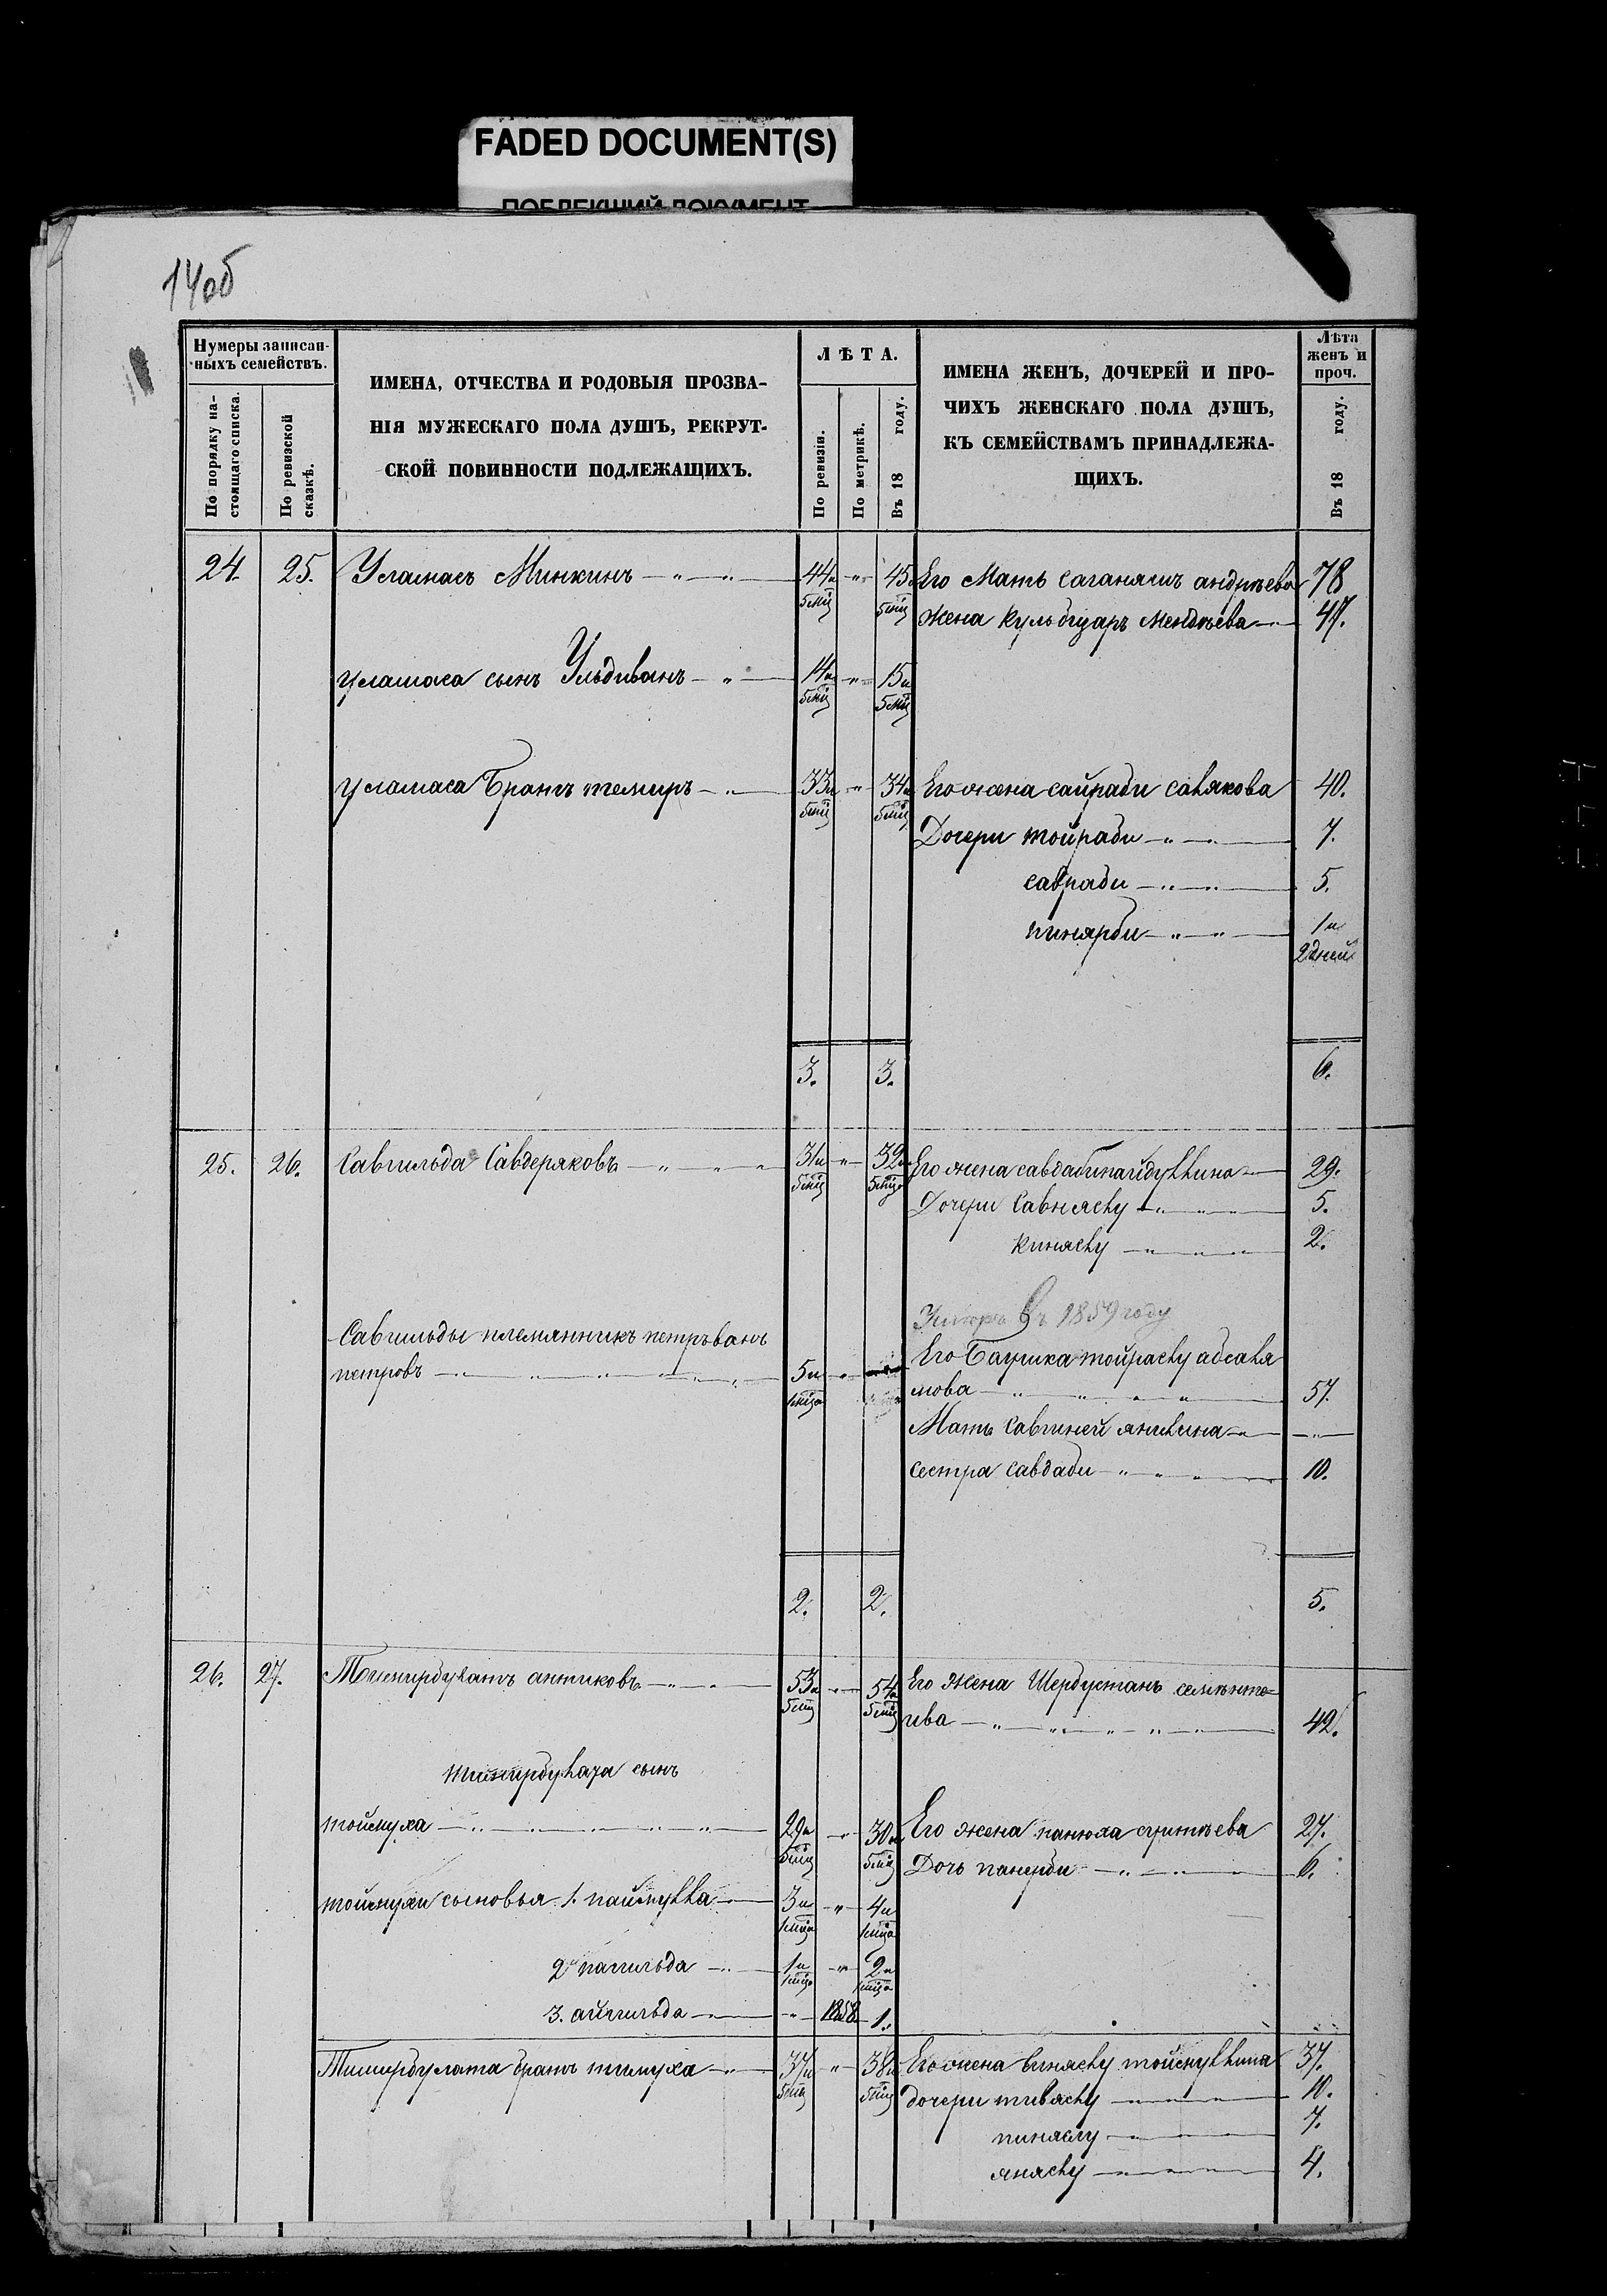 FADED DOCUMENT(S)
ПОБЛЕКШИЙ ДОКУМЕНТ
14об
Нумеры записан-
ныхъ семействъ.
По порядку на-
стоящаго списка.
По ревизской
сказкѣ.
ИМЕНА, ОТЧЕСТВА И РОДОВЫЯ ПРОЗВА-
НІЯ МУЖЕСКАГО ПОЛА ДУШЪ, РЕКРУТ-
СКОЙ ПОВИННОСТИ ПОДЛЕЖАЩИХЪ.
ЛѢТА.
По ревизіи.
По метрикѣ.
Въ 18 году.
ИМЕНА ЖЕНЪ, ДОЧЕРЕЙ И ПРО-
ЧИХЪ ЖЕНСКАГО ПОЛА ДУШЪ,
КЪ СЕМЕЙСТВАМЪ ПРИНАДЛЕЖА-
ЩИХЪ.
Лѣта
женъ и
проч.
Въ 18 году.
24. 25. Усламасъ Минкинъ 44и 45и Его Мать саганяшъ андрѣева 78
жена Кульбизаръ Мендѣева 47.
усламаса сынъ Ульдиванъ 14и 15и
усламаса Братъ темиръ 33и 34и Его жена сайраби савякова 40.
Дочери тойраби 7.
савраби 5.
пинярби 1и
2 дней
3. 3. 6.
25. 26. Савгильда Савдеряковъ 31и 32и Его жена савдаби 29.
Дочери Савняску 5.
Киняску 2.
Умеръ Въ 1859 году
Савгильды племянникъ петръванъ
петровъ 5и Его Баушка тойраску абсаля
мова 57.
Мать Савгиней яникина
сестра Савдаби 10.
2. 2. 5.
26. 27. Тимирбулатъ антиковъ 53и 54и Его Жена Шербустанъ семѣнте=
ива 42.
тимирбулата сынъ
тоймуха 29и 30и Его жена панюха 27.
Дочь панерби 6.
тоймухи сыновья 1. паймукка 3и 4и
2 пагильда 1и 2и
3. айгильда 1858 1.
Тимирбулата братъ тимуха 37и 38и Его жена винясну тоймуккина 37.
дочери тивяску 10.
пиняслу 7.
яняску 4.